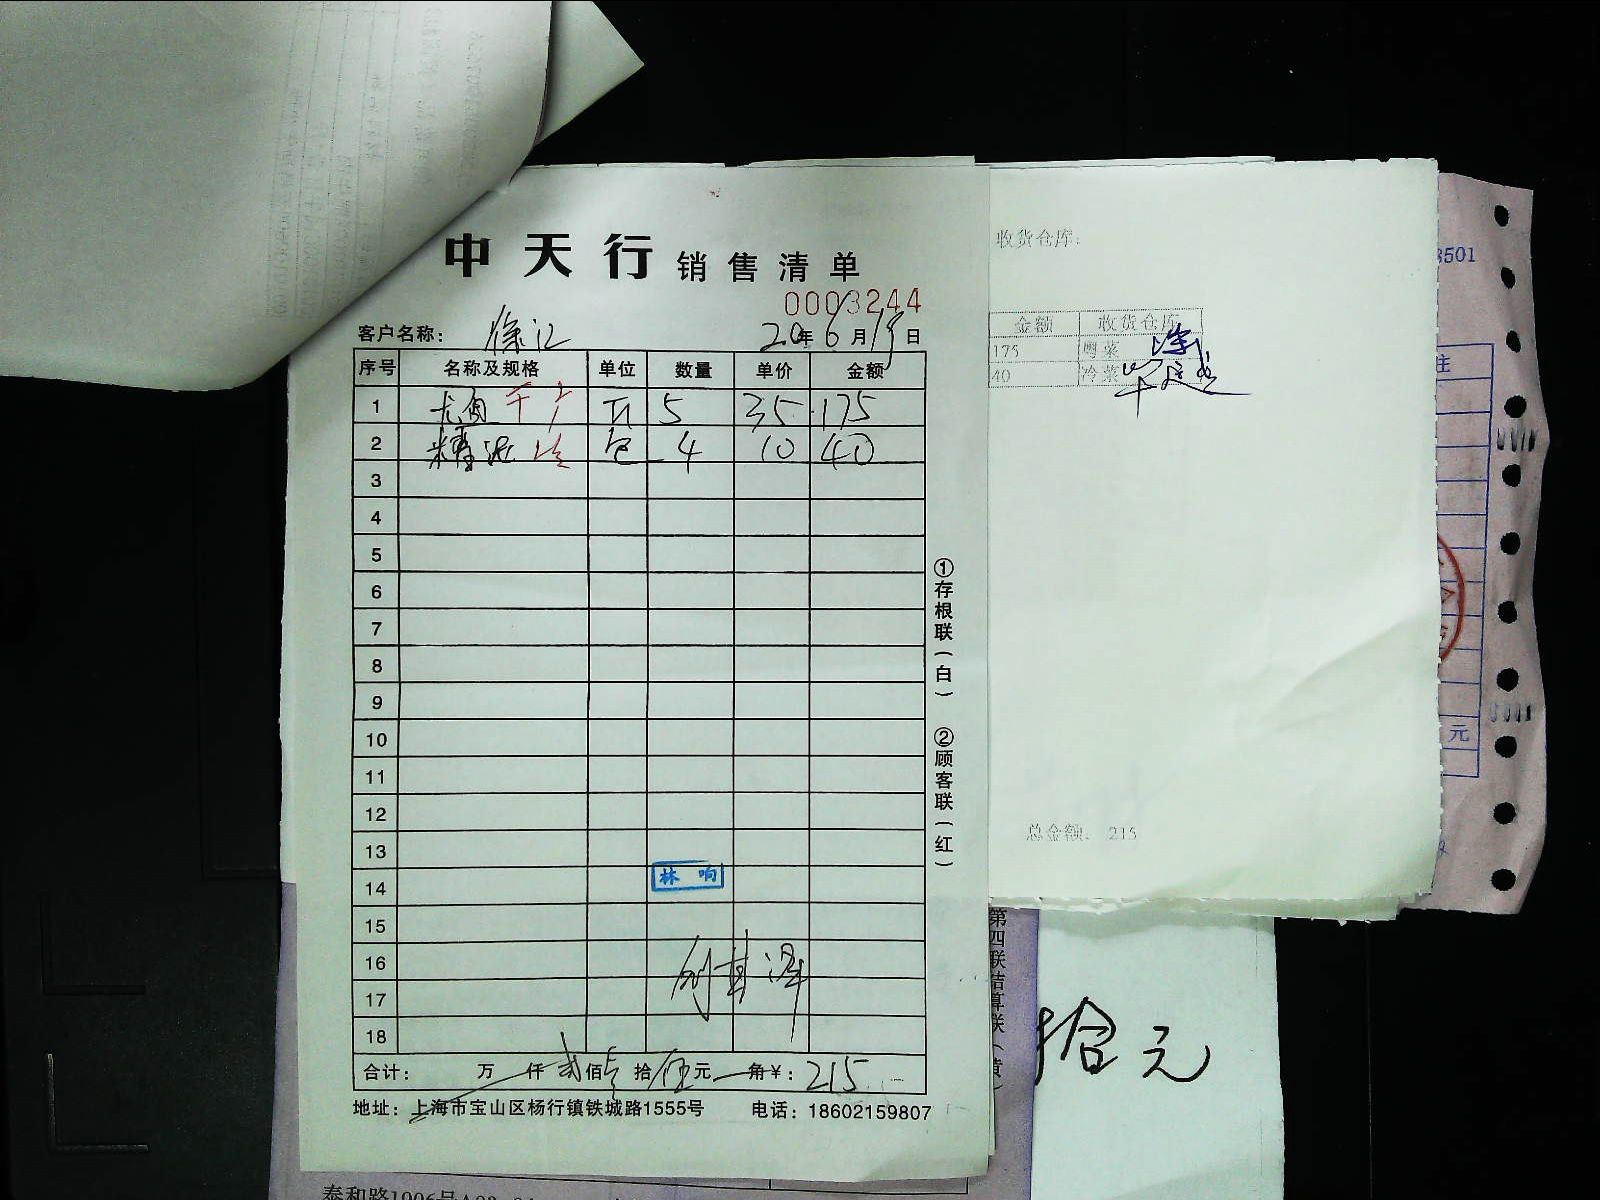 中天行 销售清单
0003244
客户名称: 徐汇 20年6月19日
序号 名称及规格 单位 数量 单价 金额
1 5 35 175
2 包 4 10 40
3
4
5
6
7
8
9
10
11
12
13
14
15
16
17
18
林 响
合计: 万 仟 贰佰壹拾伍元 角¥: 215
地址: 上海市宝山区杨行镇铁城路1555号 电话: 18602159807
①存根联(白) ②顾客联(红)
收货仓库:
金额 收货仓库
175 粤菜
40 冷菜
总金额: 215
3501
注
元
第四联结算联(黄)
拾元
泰和路1906号